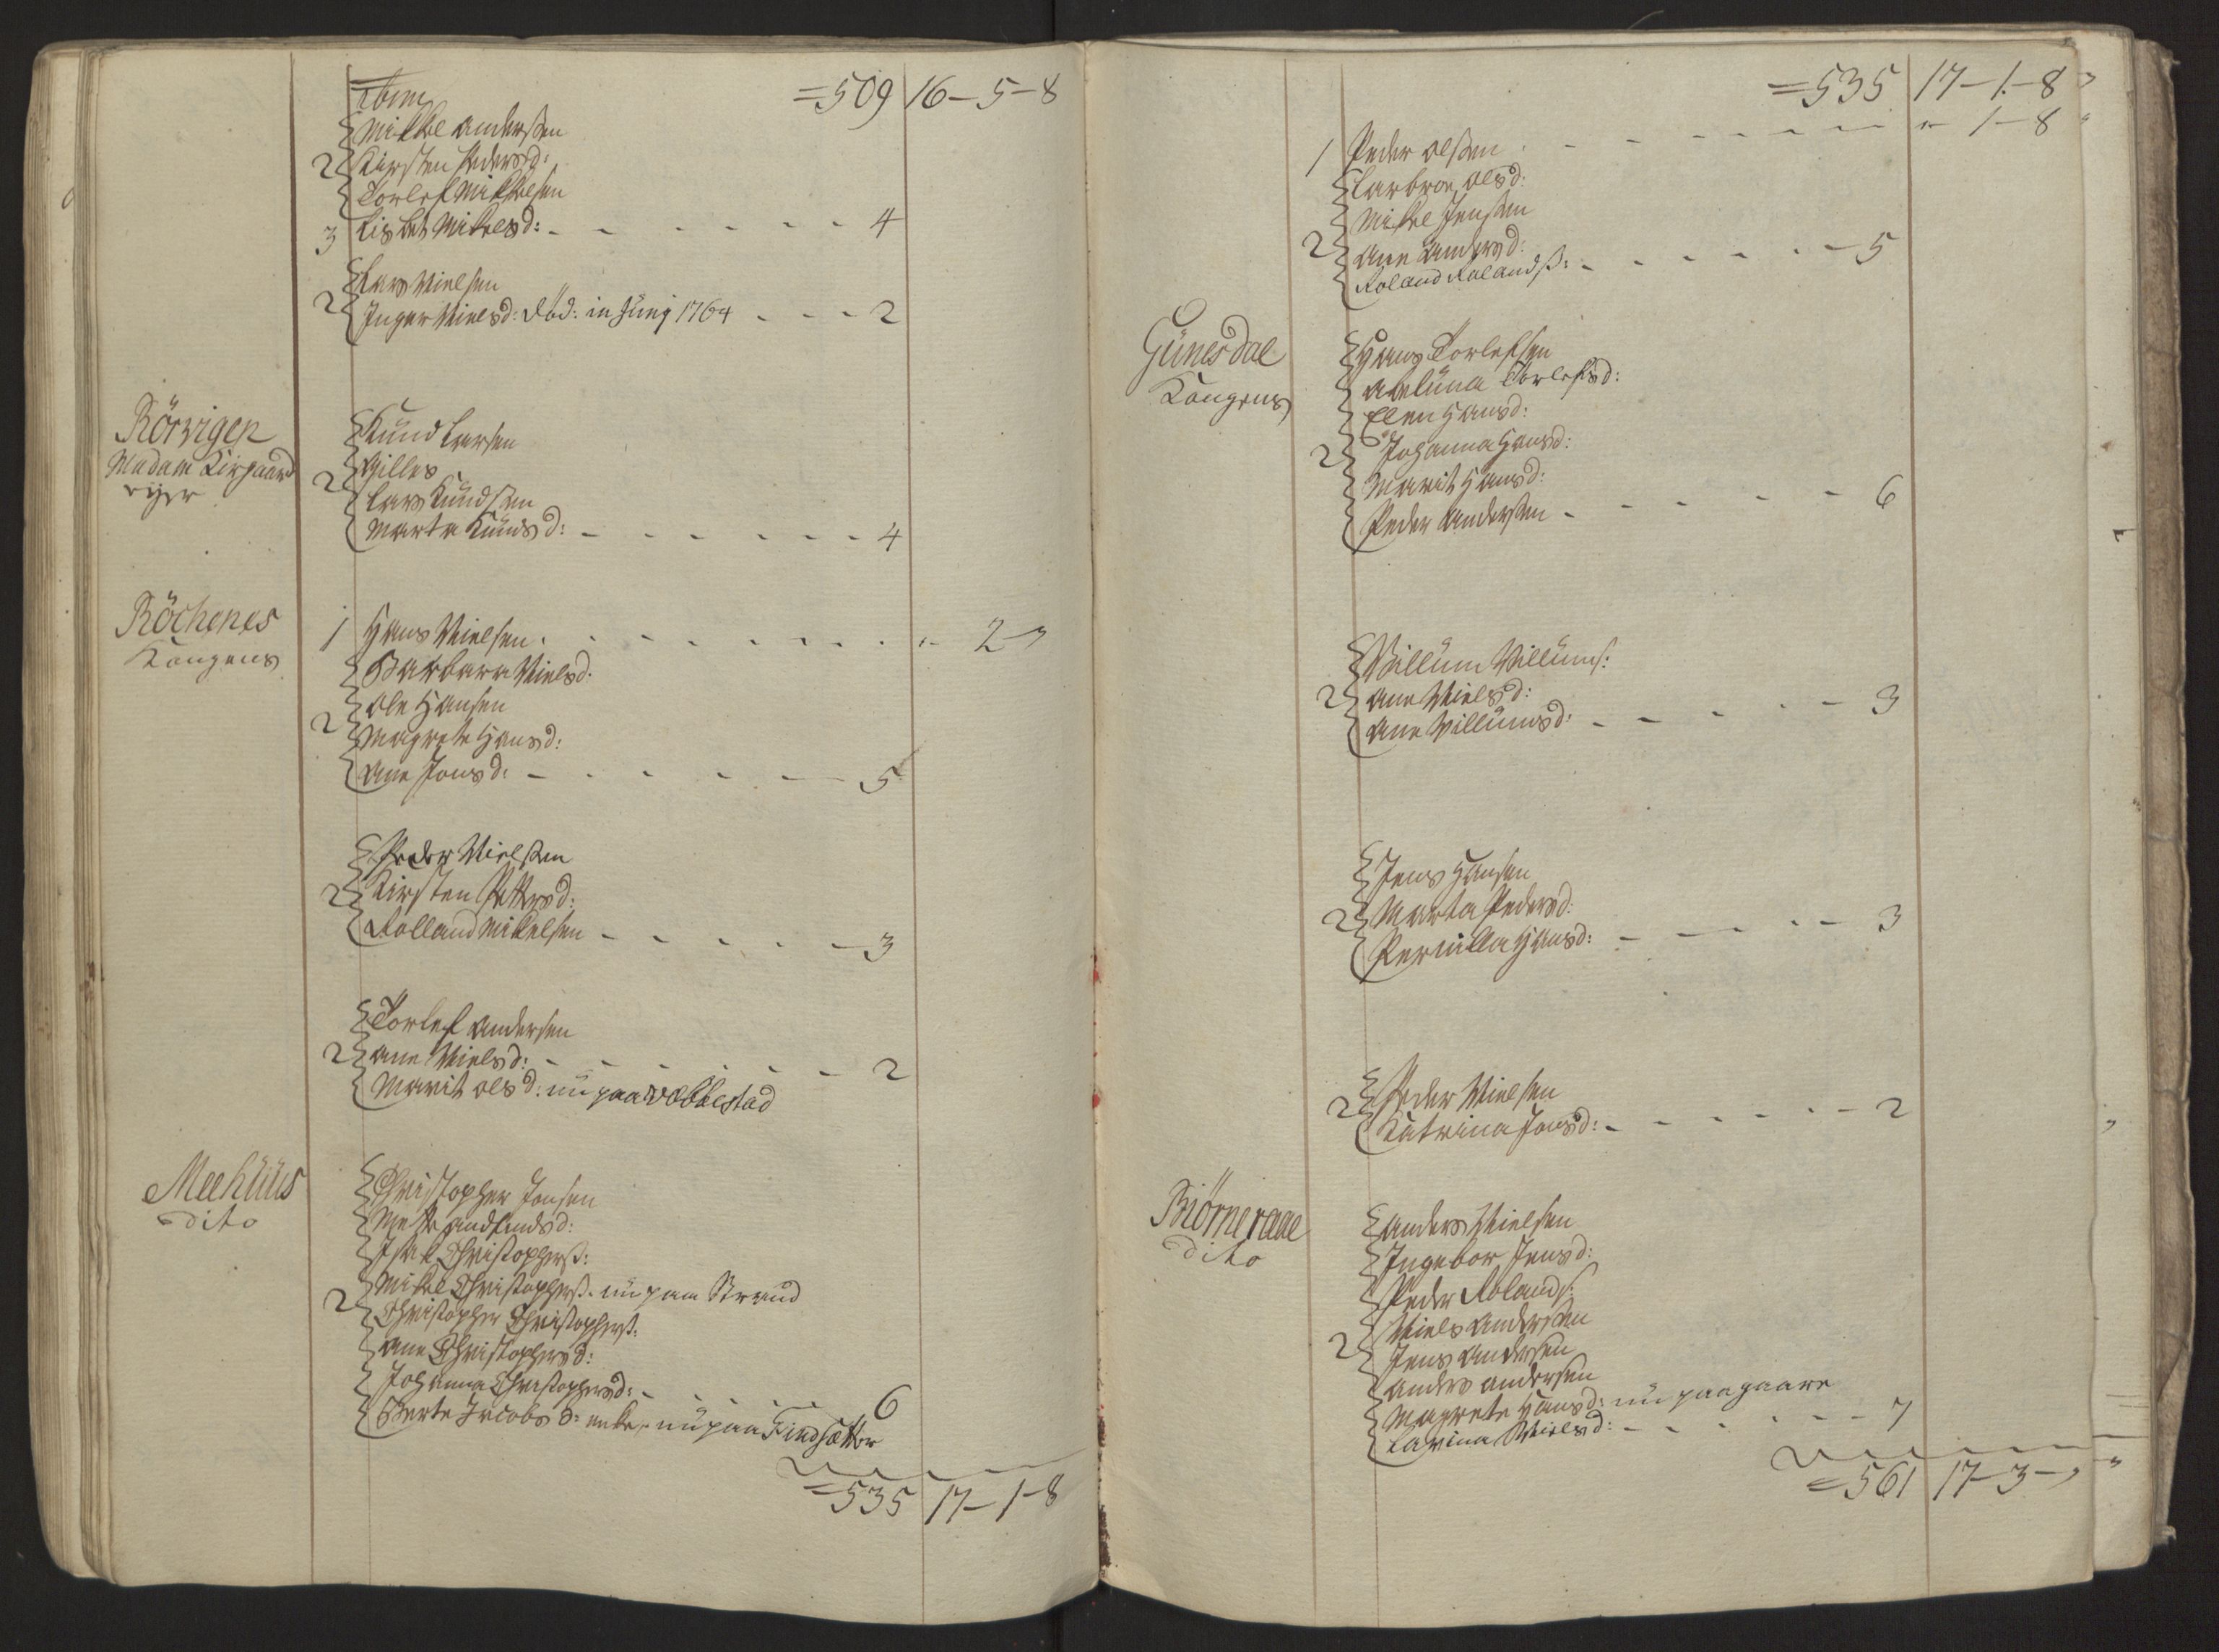 =509 16-5-8
Mikkel Andersen
2 Kirsten Pedersd:
Torlef Mikkelsen
3 Lisbet Mikelsd: - - - - - - 4
Lars Nielsen
2 Inger Nielsd: död: in Junj 1764 - - - 2
Rörvigen
Madam Kirgaard
ejer
Knud Larsen
Gilles
2 Lars Knudsen
Marta Knuds d: - - - - - - 4
Röchenes
Kongens
1 Hans Nielsen - - - - - - - 2-"
Barbara Nielsd:
Ole Hansen
2 Magrete Hansd:
Ane Jonsd: - - - - - 5
Peder Nielsen
2 Kirsten Pettersd:
Rolland Mikelsen - - - - - 3
Torlef Andersen
2 Ane Nielsd: - - - - - 2
Marit Olsd: nu paa Vebbestad
Meehuus
dito
Christopher Jonsen
Mette
Isak Christophers:
Mikel Christophers. nu paa Strand
2 Christopher Christophers:
Ane Christophersd:
Johanna Christophersd: - - - - 6
Berte Jacobs d: enke, nu paa Findsætter
=535 17-1-8
=535 17-1-8
1 Peder Olsen - - - - - - - " 1-8
Olsd:
Mikel Jensen
2 Ane Andersd: - - - - 5
Roland Rolands:
Günesdal
Kongens
Hans Torlefsen
Abeluna Torlefsd:
Elen Hansd:
2 Johanna Hansd:
Marit Hansd:
Peder Andersen - - - - - 6
Villum Villums:
2 Ane Nielsd:
Ane Villumsd: - - - - - 3
Jens Hansen
2 Marta Pedersd:
Pernilla Hansd: - - - - - 3
2 Peder Nielsen
Katrina Jonsd: - - - - - 2
Biörneraae
dito
Anders Nielsen
Ingebor Jensd:
Peder Rolands:
Niels Andersen
2 Jens Andersen
Anders Andersen
Magrete Hansd: nu paa gaare
Lavina Nielsd: - - - - - 7
=561 17-3-"